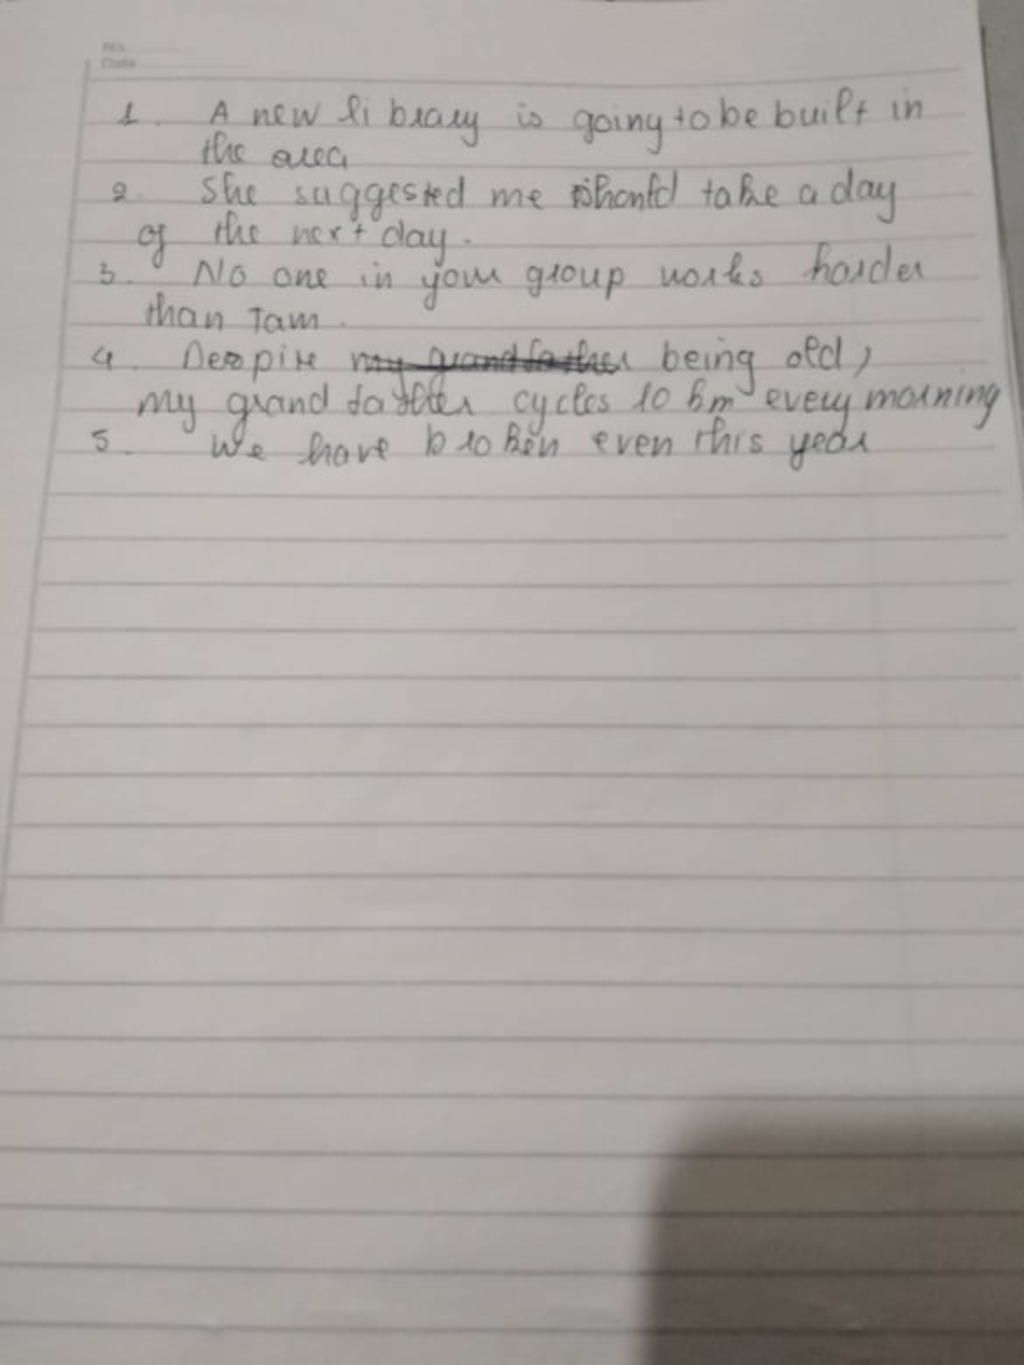 No.
Date
1. A new library is going to be built in
the area
2. She suggested me should take a day
of the next day.
3. No one in your group works harder
than Tam.
4. Despite my grandfather being old,
my grandfather cycles 10 km every morning
5. We have broken even this year